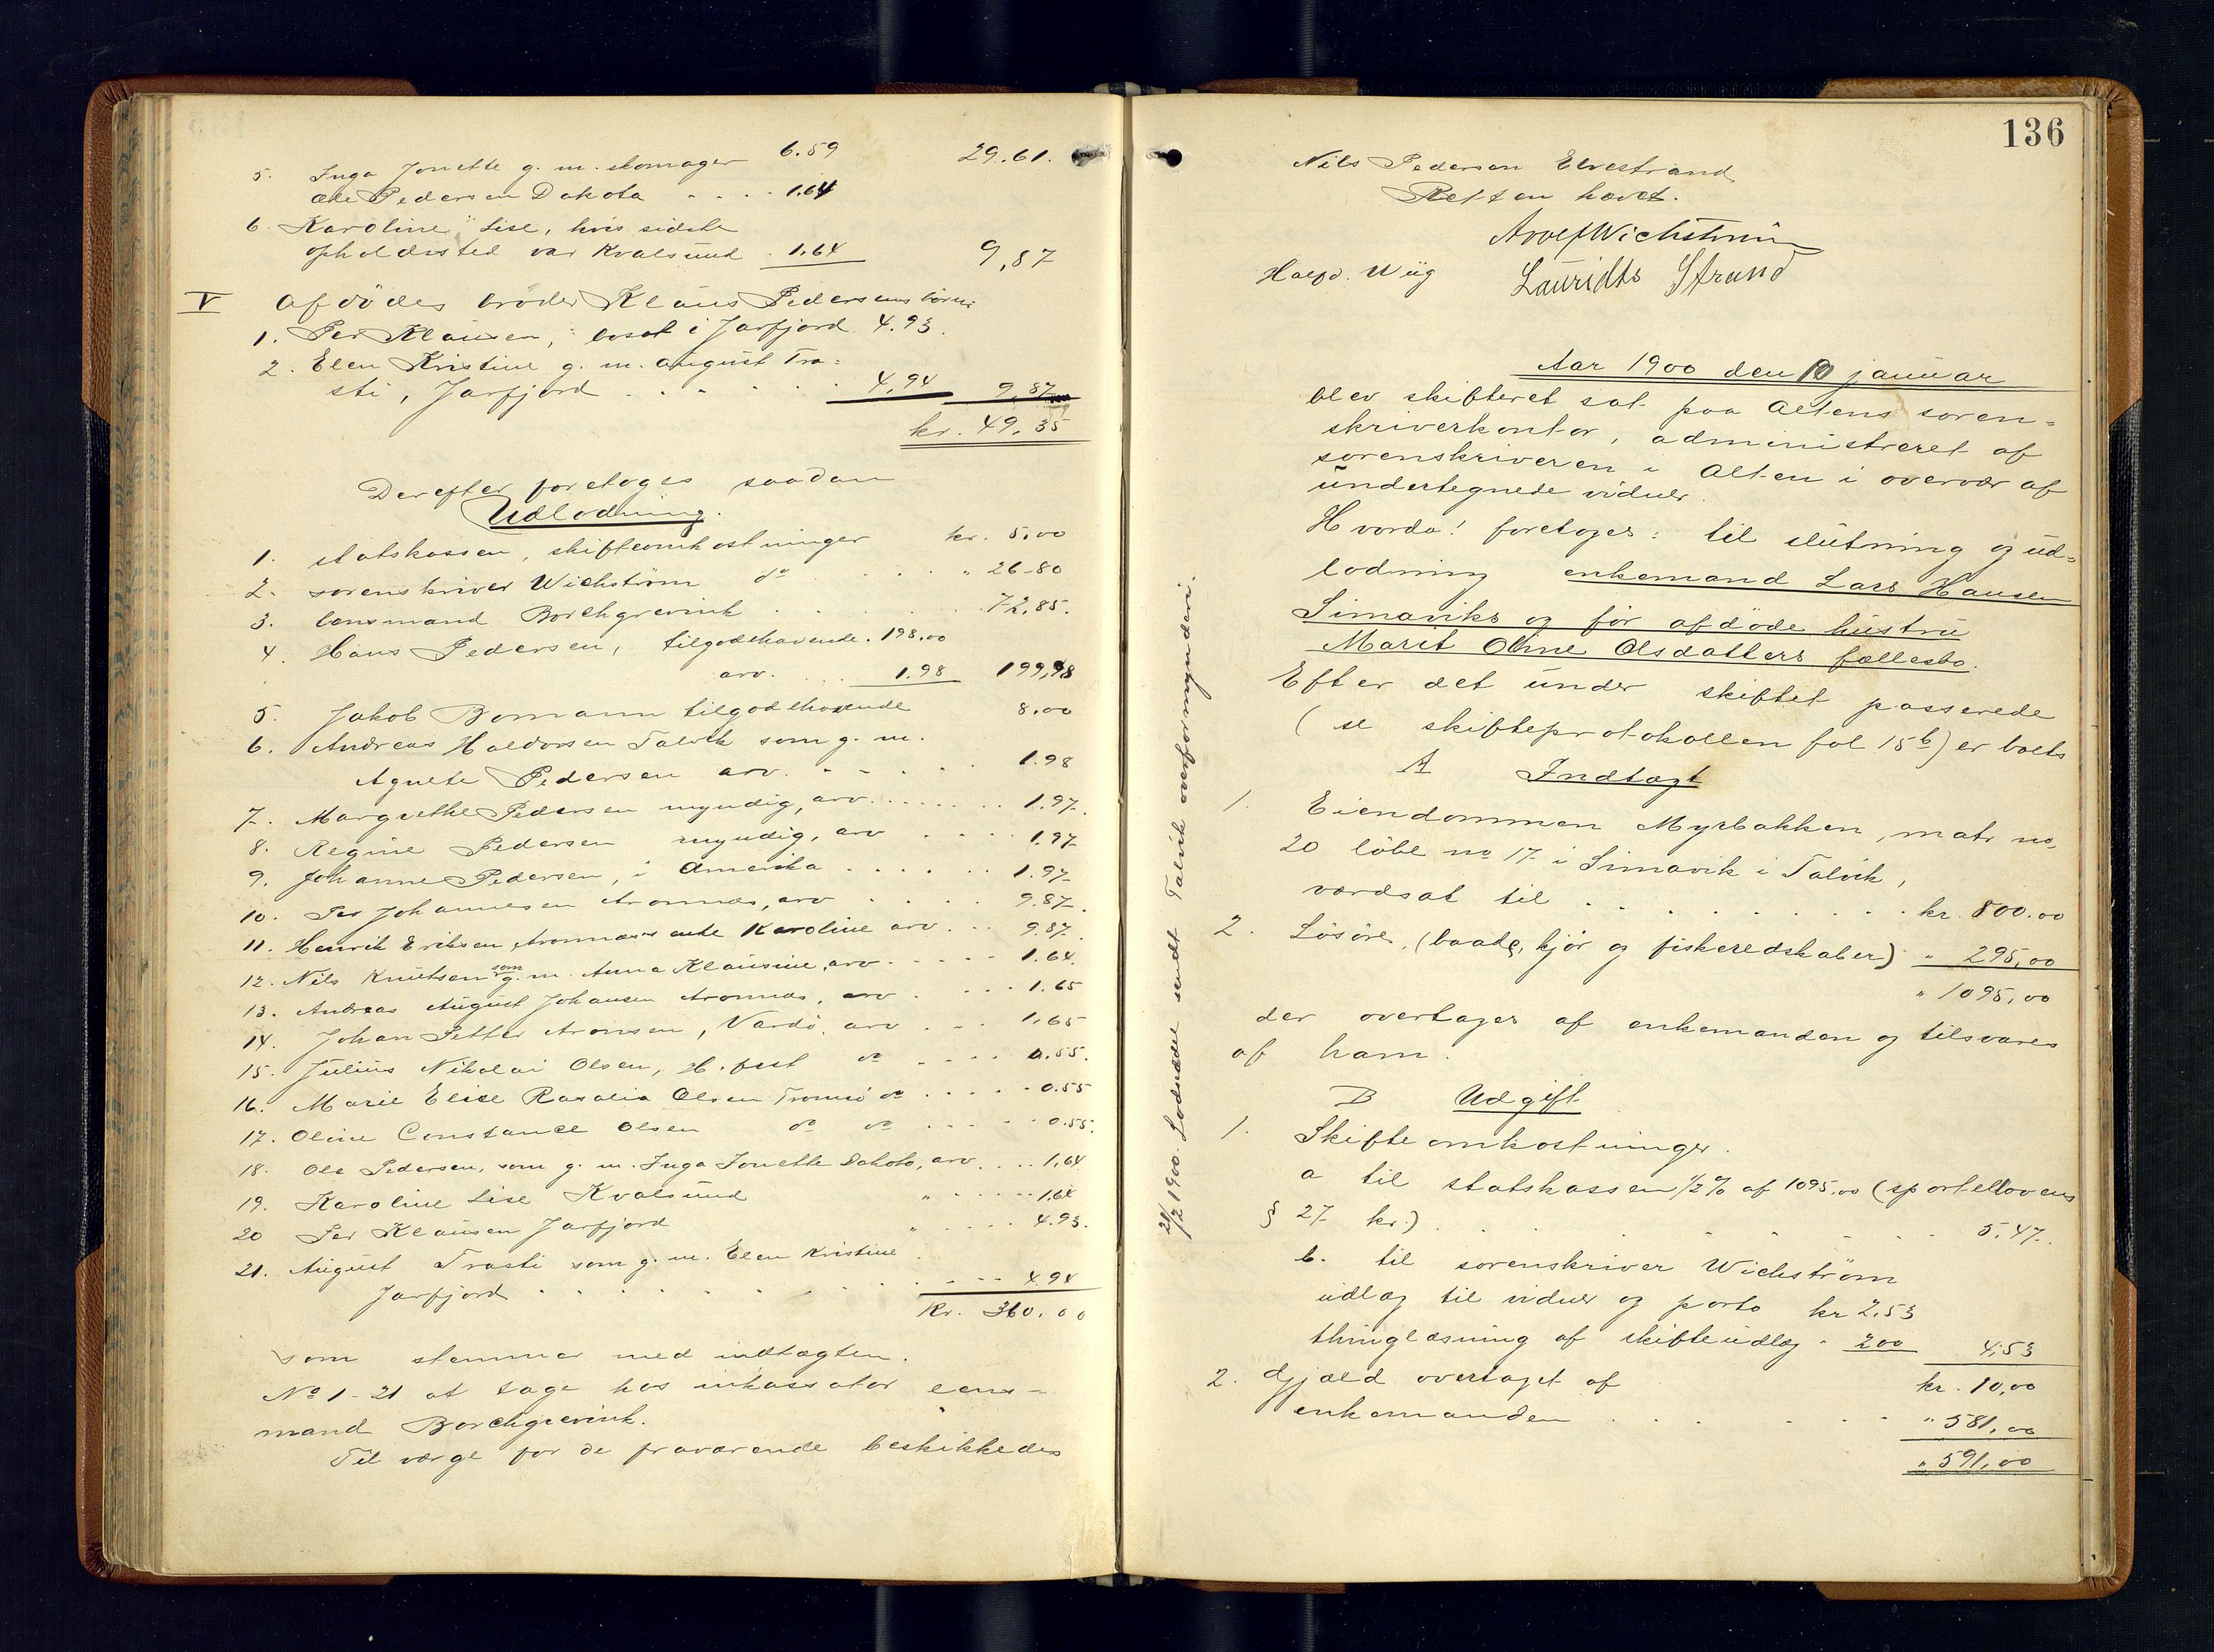 6.59 29.61.
5. Inga Jonette g. m. skomager
Ole Pedersen Dakota . . . 1.64
6. Karoline Lise, hvis sidste
opholdssted var Kvalsund . 1.64 9,87
V afdödes broder Klaus Pedersens börn:
1. Per Klausen, bosat i Jarfjord 4.93.
2. Elen Kristine g. m. August Tra=
sti, Jarfjord . . . . . . 4,94 9,87
kr. 49,35
Derefter foretoges saadan
Udlodning.
1. statskassen, skifteomkostninger kr. 5,00
2. sorenskriver Wichström do . . . . " 26-80
3. lensmand Borchgrevink . . . . . . 72,85.
4. Hans Pedersen, tilgodehavende . 198,00
arv. . . . 1.98 199,98
5. Jakob Bomann tilgodehavende 8.00
6. Andreas Haldorsen Talvik som g. m.
Agnete Pedersen arv. . . . . . 1.98
7. Margrethe Pedersen myndig, arv. . . . . . . 1.97.
8. Regine Pedersen myndig, arv . . . . 1.97
9. Johanne Pedersen, i Amerika . . . . . . 1.97
10. Per Johannesen Aronnæs, arv . . . . . 9.87.
11. Henrik Eriksen Aronnæs enke Karoline arv . . . 9.87.
12. Nils Knutsen som g. m. Anna Klausine, arv . . . . . 1.64.
13. Andreas August Johansen Aronnæs, arv . . . . . 1.65
14. Johan Petter Aronsen, Vardö, arv . . . 1,65
15. Julius Nikolai Olsen, H.fest do . . . . 0.55.
16. Marie Elise Rasalia Olsen Tromsö do . . . . . 0.55
17. Oline Constance Olsen do do . . . . . 0.55.
18. Ole Pedersen, som g. m. Inga Jonette Dakota, arv . . . . 1,64
19. Karoline Lise Kvalsund " . . . . . 1.64
20 Per Klausen Jarfjord " . . . . 4.93.
21. August Trasti som g. m. Elen Kristine
Jarfjord . . . . . . . . . . . 4.94
Kr. 360.00
som stemmer med indtægten.
No 1-21 at tage hos inkassator lens-
mand Borchgrevink.
Til værge for de fraværende beskikkedes
136
Nils Pedersen Elvestrand
Retten hævet.
Wichström
Halfd. Wiig Lauridts Strand
Aar 1900 den 10 januar
blev skifteret sat paa Altens soren=
skriverkontor, administreret af
sorenskriveren i Alten i overvær af
undertegnede vidner.
Hvorda! foretoges: til slutning og ud=
lodning enkemand Lars Hansen
Simaviks og før afdöde hustru
Marit Oline Olsdatters fællesbo.
Efter det under skiftet passerede
(se skifteprotokollen fol 15b) er boets
A Indtægt
1. Eiendommen Myrbakken, matr no,
20 löbe no 17 i Simavik i Talvik,
værdsat til . . . . . . . . . . kr. 800.00
2. Lösöre, (baade, kjör og fiskeredskaber) " 295,00
" 1095,00
der overtages af enkemanden og tilsvares
af ham.
B Udgift
1. Skifteomkostninger.
a til statskassen 1/2% af 1095,00 (sportellovens
§ 27 kr.) . . . . . . . . 5.47.
b. til sorenskriver Wichström
udlæg til vidner og porto kr 2,53
thinglæsning af skifteudlæg " 2.00 4,53
kr. 10,00
2. Gjæld overtaget af
enkemanden . . . . . . " 581,00
" 591,00
21/2 1900. Lodsedde sendt Talvik overformynderi.